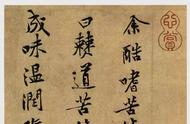 余酷嗜苦
曰僰道苦
成味温润